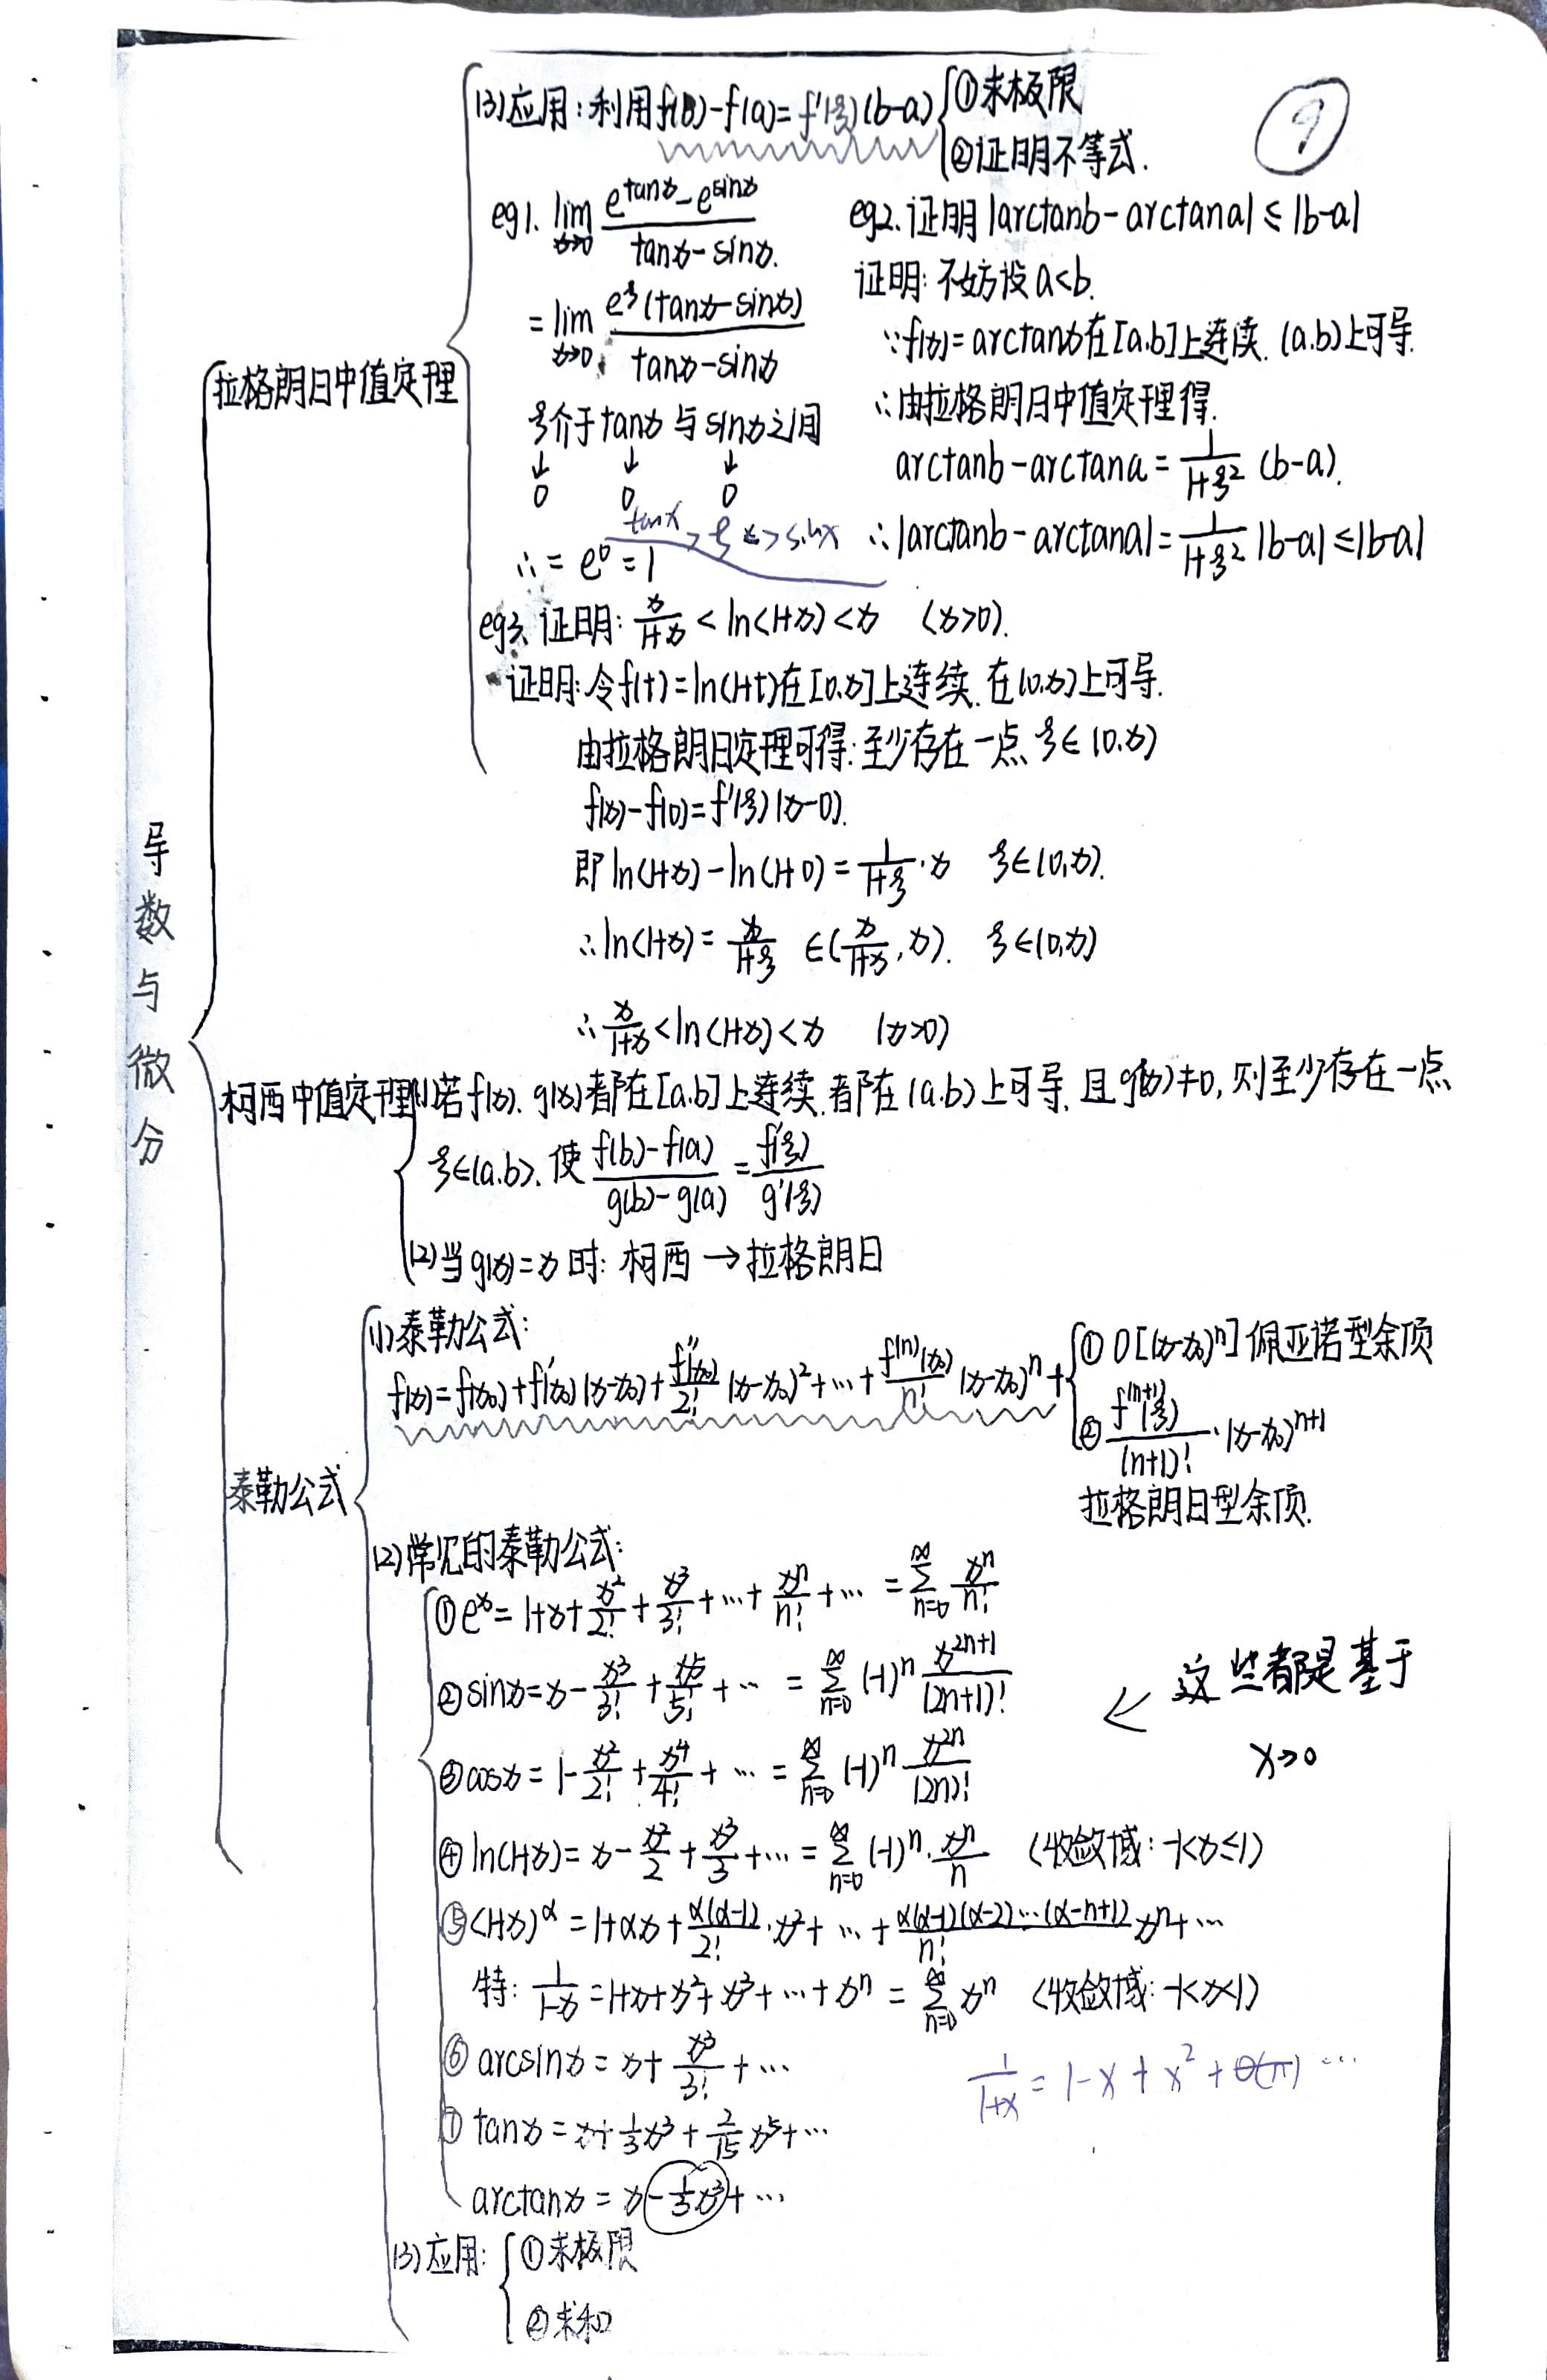 9
导数与微分
拉格朗日中值定理
(3)应用:利用f(b)-f(a)=f'(ξ)(b-a) ①求极限
②证明不等式.
eg1. lim x→0 (e^tanx-e^sinx)/(tanx-sinx).
=lim x→0 e^ξ(tanx-sinx)/(tanx-sinx)
ξ介于tanx与sinx之间
↓ ↓ ↓
0 0 0
tanx > ξ > sinx
∴=e^0=1
eg2.证明|arctanb-arctana|≤|b-a|
证明:不妨设a<b.
∵f(x)=arctanx在[a.b]上连续.(a.b)上可导.
∴由拉格朗日中值定理得.
arctanb-arctana=1/(1+ξ²) (b-a).
∴|arctanb-arctana|=1/(1+ξ²) |b-a|≤|b-a|
eg3.证明:x/(1+x)<ln(1+x)<x (x>0).
证明:令f(t)=ln(1+t)在[0.x]上连续.在(0.x)上可导.
由拉格朗日定理可得:至少存在一点ξ∈(0.x)
f(x)-f(0)=f'(ξ)(x-0).
即ln(1+x)-ln(1+0)=1/(1+ξ)·x ξ∈(0,x).
∴ln(1+x)=x/(1+ξ) ∈(x/(1+x),x). ξ∈(0,x)
∴x/(1+x)<ln(1+x)<x (x>0)
柯西中值定理 (1)若f(x).g(x)都在[a.b]上连续.都在(a.b)上可导.且g'(x)≠0,则至少存在一点
ξ∈(a.b).使 (f(b)-f(a))/(g(b)-g(a))=f'(ξ)/g'(ξ)
(2)当g(x)=x时:柯西→拉格朗日
泰勒公式
(1)泰勒公式:
f(x)=f(x₀)+f'(x₀)(x-x₀)+f''(x₀)/2! (x-x₀)²+…+f^(n)(x₀)/n! (x-x₀)^n+ ①0[(x-x₀)^n]佩亚诺型余项
②f^(n+1)(ξ)/(n+1)!·(x-x₀)^(n+1)
拉格朗日型余项.
(2)常见的泰勒公式:
①e^x=1+x+x²/2!+x³/3!+…+x^n/n!+… =∑(n=0→∞) x^n/n!
②sinx=x-x³/3!+x⁵/5!+… =∑(n=0→∞)(-1)^n x^(2n+1)/(2n+1)!
③cosx=1-x²/2!+x⁴/4!+… =∑(n=0→∞)(-1)^n x^(2n)/(2n)!
← 这些都是基于
x→0
④ln(1+x)=x-x²/2+x³/3+…=∑(n=0→∞)(-1)^n·x^n/n (收敛域:-1<x≤1)
⑤(1+x)^α=1+αx+α(α-1)/2!·x²+…+α(α-1)(α-2)…(α-n+1)/n! x^n+…
特:1/(1-x)=1+x+x²+x³+…+x^n=∑(n=0→∞)x^n (收敛域:-1<x<1)
⑥arcsinx=x+x³/3!+…
1/(1+x)=1-x+x²+…
⑦tanx=x+1/3x³+2/15x⁵+…
arctanx=x-1/3x³+…
(3)应用: ①求极限
②求和